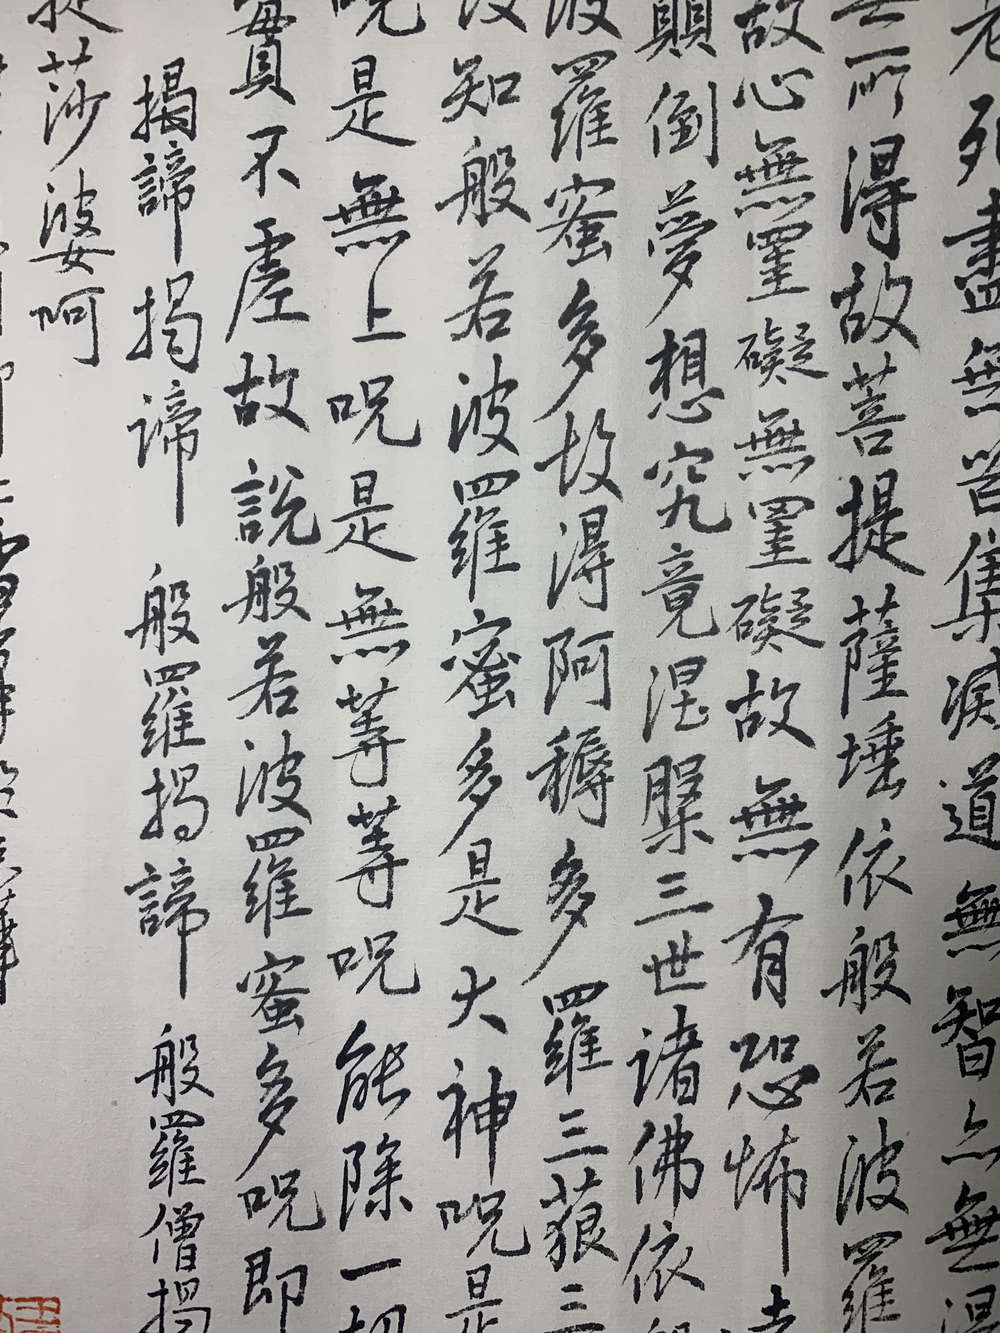 老死盡無苦集滅道無智亦無得
無所得故菩提薩埵依般若波羅
故心無罣礙無罣礙故無有恐怖
顛倒夢想究竟涅槃三世諸佛依般
波羅蜜多故得阿耨多羅三藐三
知般若波羅蜜多是大神呪是
呪是無上呪是無等等呪能除一切
實不虛故說般若波羅蜜多呪即
揭諦揭諦 般羅揭諦 般羅僧揭
提莎婆呵